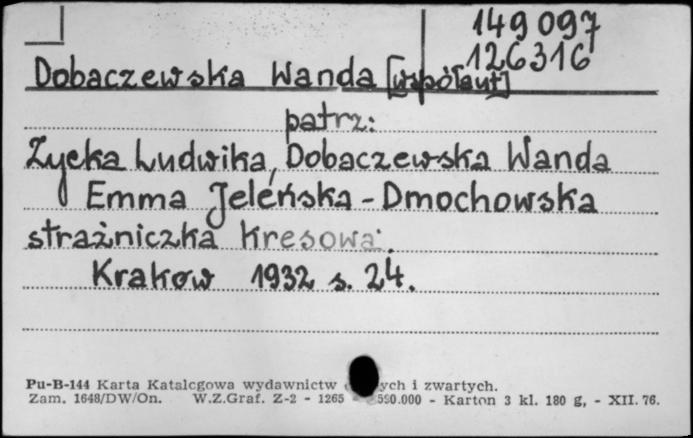 149 097
126316
Dobaczewska Wanda [współaut]
patrz:
Życka Ludwika, Dobaczewska Wanda
Emma Jeleńska-Dmochowska
strażniczka kresowa.
Kraków 1932 s. 24.
Pu-B-144 Karta Katalogowa wydawnictw ych i zwartych.
Zam. 1648/DW/On. W.Z.Graf. Z-2 - 1265 - 550.000 - Karton 3 kl. 180 g, - XII. 76.